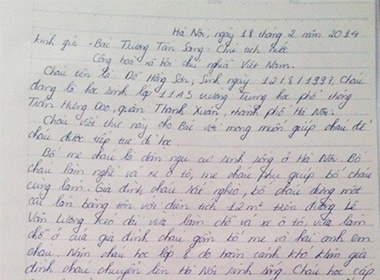 Hà Nội, ngày 18 tháng 2 năm 2014
Kính gửi - Bác Trương Tấn Sang - Chủ tịch nước
Cộng hoà xã hội chủ nghĩa Việt Nam.
Cháu tên là Đỗ Hồng Sơn, Sinh ngày 12/8/1997. Cháu
đang là học sinh lớp 11A5 trường trung học phổ thông
Trần Hưng Đạo, quận Thanh Xuân, thành phố Hà Nội.
Cháu viết thư này cho Bác với mong muốn giúp cháu để
cháu được tiếp tục đi học.
Bố mẹ cháu là dân ngụ cư sinh sống ở Hà Nội. Bố
cháu làm nghề vá xe ô tô, mẹ cháu phụ giúp bố cháu
cùng làm. Gia đình cháu rất nghèo, bố cháu dựng một
cái lán bằng tôn với diện tích 12m² trên đường Lê
Văn Lương kéo dài vừa làm chỗ vá xe ô tô, vừa làm
chỗ ở của gia đình cháu gồm bố mẹ và hai anh em
cháu. Năm cháu học lớp 8 do hoàn cảnh khó khăn gia
đình cháu chuyển lên Hà Nội sinh sống. Cháu học cấp